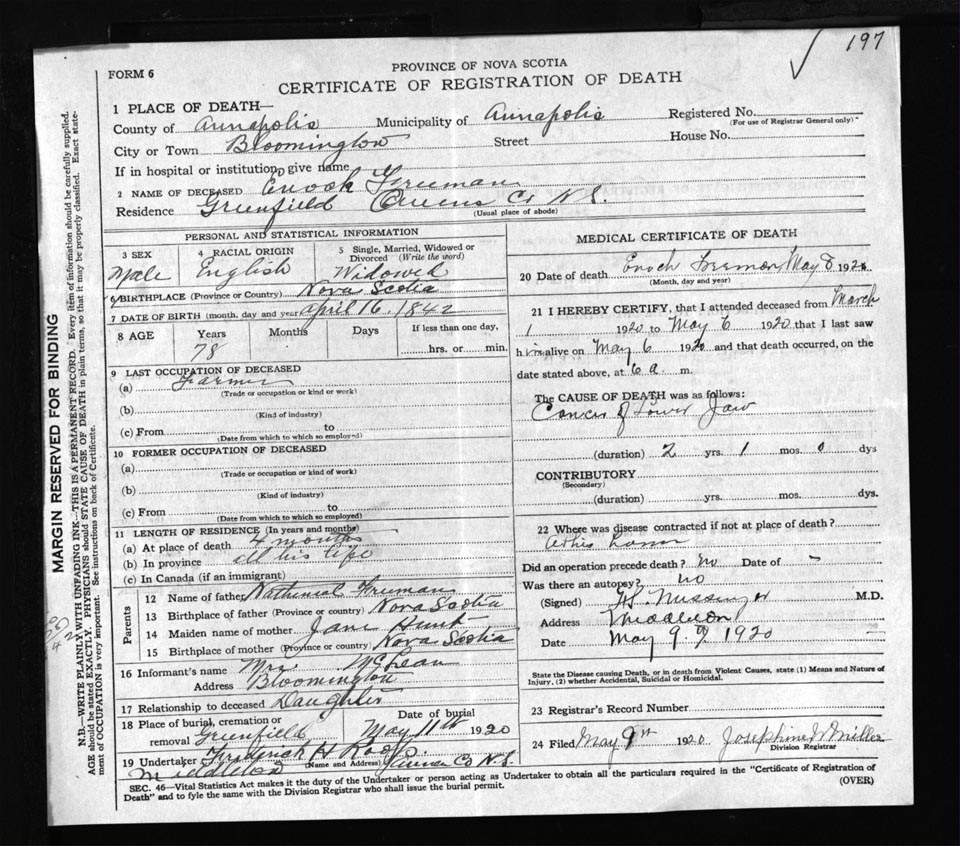 197
FORM 6
PROVINCE OF NOVA SCOTIA
CERTIFICATE OF REGISTRATION OF DEATH
1 PLACE OF DEATH—
County of Annapolis Municipality of Annapolis Registered No.
(For use of Registrar General only)
City or Town Bloomington Street House No.
If in hospital or institution, give name
2 NAME OF DECEASED Enoch Freeman
Residence Greenfield Queens Co N.S.
(Usual place of abode)
PERSONAL AND STATISTICAL INFORMATION
3 SEX 4 RACIAL ORIGIN 5 Single, Married, Widowed or Divorced (Write the word)
Male English Widowed
6 BIRTHPLACE (Province or Country) Nova Scotia
7 DATE OF BIRTH (month, day and year) April 16, 1842
8 AGE Years Months Days If less than one day,
78 hrs. or min.
9 LAST OCCUPATION OF DECEASED
(a) Farmer
(Trade or occupation or kind or work)
(b)
(Kind of industry)
(c) From to
(Date from which to which so employed)
10 FORMER OCCUPATION OF DECEASED
(a)
(Trade or occupation or kind of work)
(b)
(Kind of industry)
(c) From to
(Date from which to which so employed)
11 LENGTH OF RESIDENCE (In years and months)
(a) At place of death 4 months
(b) In province all his life
(c) In Canada (if an immigrant)
Parents
12 Name of father Nathaniel Freeman
13 Birthplace of father (Province or country) Nova Scotia
14 Maiden name of mother Jane Hunt
15 Birthplace of mother (Province or country) Nova Scotia
16 Informant's name Mrs. McLean
Address Bloomington
17 Relationship to deceased Daughter
18 Place of burial, cremation or removal Greenfield Date of burial May 11th 1920
19 Undertaker Frederick H Roop.
(Name and Address) Queens Co N.S.
Middleton
MEDICAL CERTIFICATE OF DEATH
20 Date of death Enoch Freeman May 8 1920
(Month, day and year)
21 I HEREBY CERTIFY, that I attended deceased from March
1 1920 to May 6 1920 that I last saw
him alive on May 6 1920 and that death occurred, on the
date stated above, at 6 a. m.
The CAUSE OF DEATH was as follows:
Cancer of Lower Jaw
(duration) 2 yrs. 1 mos. 0 dys
CONTRIBUTORY
(Secondary)
(duration) yrs. mos. dys.
22 Where was disease contracted if not at place of death?
at his home
Did an operation precede death? no Date of —
Was there an autopsy? no
(Signed) M.D.
Address Middleton
Date May 9 1920
State the Disease causing Death, or in death from Violent Causes, state (1) Means and Nature of
Injury, (2) whether Accidental, Suicidal or Homicidal.
23 Registrar's Record Number
24 Filed May 9th 1920 Josephine W Miller
Division Registrar
SEC. 46—Vital Statistics Act makes it the duty of the Undertaker or person acting as Undertaker to obtain all the particulars required in the "Certificate of Registration of
Death" and to fyle the same with the Division Registrar who shall issue the burial permit. (OVER)
MARGIN RESERVED FOR BINDING
N.B.—WRITE PLAINLY WITH UNFADING INK—THIS IS A PERMANENT RECORD. Every item of information should be carefully supplied.
AGE should be stated EXACTLY. PHYSICIANS should STATE CAUSE OF DEATH in plain terms, so that it may be properly classified. Exact state-
ment of OCCUPATION is very important. See instructions on back of Certificate.